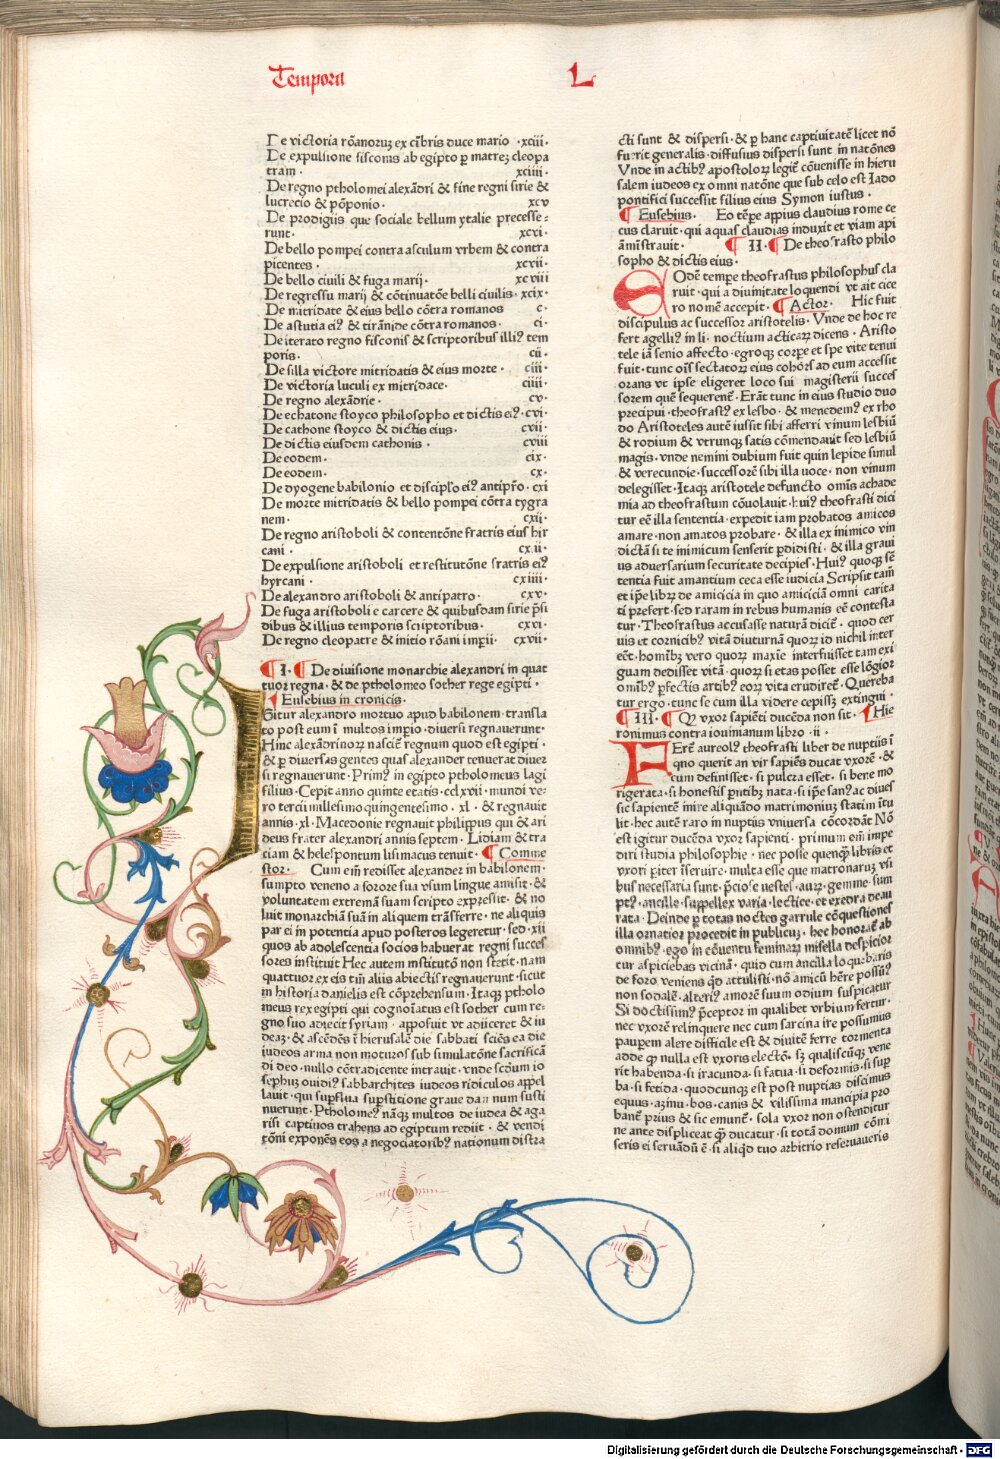 Tempora L
De victoria rõanoruʒ ex cĩbris duce mario ·xciii·
De expulsione fisconis ab egipto ꝑ matreʒ cleopa
tram · xciiii·
De regno ptholomei alexãdri & fine regni sirie &
lucrecio & põponio· xcv
De prodigiis que sociale bellum ytalie precesse:
runt· xcvi·
De bello pompei contra asculum vrbem & contra
picentes · xcvii·
De bello ciuili & fuga marij· xcviii
De regressu marij & cõtinuatõe belli ciuilis· xcix·
De mitridate & eius bello cõtra romanos c·
De astutia eiꝰ & tirãnide cõtra romanos· ci·
De iterato regno fisconis & scriptoribus illiꝰ tem
poris· cii·
De silla victore mitridatis & eius morte · ciii·
De victoria luculi ex mitridace· ciiii·
De regno alexãdrie · cv·
De echatone stoyco philosopho et dictis eiꝰ· cvi·
De cathone stoyco & dictis eius· cvii·
De dictis eiusdem cathonis · cviii
De eodem· cix·
De eodem· cx·
De dyogene babilonio et discipl'o eiꝰ antipr̃o· cxi
De morte mitridatis & bello pompei cõtra tygra
nem· cxii·
De regno aristoboli & contentõne fratris eiuſ hir
cani · cxiii·
De expulsione aristoboli et restitutõne fratris eiꝰ
hyrcani · cxiiii·
De alexandro aristoboli & antipatro· cxv·
De fuga aristoboli e carcere & quibusdam sirie p̃si
dibus & illius temporis scriptoribus· cxvi·
De regno cleopatre & initio rõani imꝑii· cxvii·
¶ I· ¶ De diuisione monarchie alexandri in quat
tuor regna· & de ptholomeo sother rege egipti ·
¶ Eusebius in cronicis·
Igitur alexandro mortuo apud babilonem· transla
to post eum ĩ multos impio· diuersi regnauerunt·
Hinc alexãdrinoꝝ nasciẽ regnum quod est egipti ·
& ꝑ diuersas gentes quaſ alexander tenuerat diuer
si regnauerunt· Primꝰ in egipto ptholomeus lagi
filius· Cepit anno quinte etatis· cclxvii· mundi ve
ro tercii millesimo quingentesimo · xl · & regnauit
annis· xl· Macedonie regnauit philippus qui & ari
deus frater alexandri annis septem · Lidiam & tra
ciam & helespontum lisimacus tenuit· ¶ Comme
stor· Cum em̃ redisset alexander in babilonem·
sumpto veneno a sorore sua vsum lingue amisit· &
voluntatem extremã suam scripto expressit· & no
luit monarchiã suã in aliquem trãsferre· ne aliquis
par ei in potentia apud posteros legeretur· sed· xii
quos ab adolescentia socios habuerat regni succes
sores instituit Hec autem institutõ non stetit· nam
quattuor ex eis tm̃ aliis abiectis regnauerunt· sicut
in historia danielis est cõprehensum· Itaqꝫ ptholo
meus rex egipti qui cognoĩatus est sother cum re
gno suo adiecit syriam · apposuit vt adiiceret & iu
deaʒ· & ascẽdẽs ĩ hierusalẽ die sabbati sciẽs ea die
iudeos arma non moturoſ sub simulatõne sacrificã
di deo· nullo cõtradicente intrauit· vnde scd̃um io
sephuʒ ouidiꝰ sabbarchites iudeos ridiculos appel
lauit· qui suꝑflua suꝑstitione graue dañ num susti
nuerunt· Ptholomeꝰ nãqꝫ multos de iudea & aga
risi captiuos trahens ad egiptum rediit · & vendi
cõni exponẽs eos a negociatoribꝰ nationum distra
cti sunt & dispersi· & ꝑ hanc captiuitatẽ licet nõ
fuerit generalis· diffusius dispersi sunt in natõnes
Vnde in actibꝰ apostoloꝝ legit̃ cõuenisse in hieru
salem iudeos ex omni natõne que sub celo est Iado
pontifici successit filius eius Symon iustus ·
¶ Eusebius· Eo tẽpe appius claudius rome ce
cus claruit· qui aquaſ claudias induxit et viam api
ãmĩstrauit· ¶ II·¶ De theofrasto philo
sopho & dictis eius·
Eodẽ tempe theofrastus philosophuſ cla
ruit· qui a diuinitate loquendi vt ait cice
ro nomẽ accepit· ¶ Actor· Hic fuit
discipulus ac successor aristotelis· Vnde de hoc re
fert agelliꝰ in li· noctium acticaꝝ dicens · Aristo
tele iã senio affecto· egroqꝫ corꝑe et spe vite tenui
fuit· tunc oĩſ sectatoꝝ eius cohorſ ad eum accessit
orans vt ipse eligeret loco sui magisterii succes
sorem quẽ sequerent̃· Erãt tunc in eius studio duo
precipui · theofrastꝰ ex lesbo· & menedemꝰ ex rho
do Aristoteles autẽ iussit sibi afferri vinum lesbiũ
& rodium & vtrunqꝫ satis cõmendauit sed lesbiũ
magis· vnde nemini dubium fuit quin lepide simul
& verecundie· successorẽ sibi illa uoce· non vinum
delegisset· Itaqꝫ aristotele defuncto omĩs achade
mia ad theofrastum cõuolauit· huiꝰ theofrasti dici
tur eẽ illa sententia · expedit iam probatos amicos
amare· non amatos probare· & illa ex inimico vin
dictã si te inimicum senserit ꝑdidisti· & illa graui
us aduersarium securitate decipies· Huiꝰ quoqꝫ sẽ
tentia fuit amantium ceca esse iudicia Scripsit tam̃
et ip̃e librꝫ de amicicia in quo amiciciã omni carita
ti prefert· sed raram in rebus humanis eẽ contesta
tur · Theofrastus accusasse naturã dicit̃· quod cer
uis et cornicibꝰ vitã diuturnã quoꝝ id nichil inter
eẽt· homĩbꝫ vero quoꝝ maxĩe interfuisset tam exi
guam dedisset vitã· quoꝝ si etas posset esse lõgior
omĩbꝰ ꝑfectis artibꝰ eoꝝ vita erudiret̃· Quereba
tur ergo· tunc se cum illa videre cepissꝫ extingui ·
¶ III· ¶ Qꝰ vxor sapiẽti ducẽda non sit· ¶ Hie
ronimus contra iouinianum libro ·ii ·
Fert̃ aureolꝰ theofrasti liber de nuptiis ĩ
quo querit an vir sapiẽs ducat vxorẽ· &
cum definisset· si pulcra esset· si bene mo
rigerata· si honestiſ ꝑntibꝫ nata· si ip̃e san9 ac diues
sic sapientẽ inire aliquãdo matrimoniuʒ statim ĩtu
lit· hec autẽ raro in nuptiis vniuersa cõcordãt Nõ
est igitur ducẽda vxor sapienti · primum em̃ impe
diri studia philosophie · nec posse quenqꝫ libris et
vxori ꝑiter ĩseruire· multa esse que matronaꝝ vsi
bus necessaria sunt· p̃ciose uestes· auꝝ· gemme· sum
ptꝰ· ancille· suppellex varia· lectice· et exedra deau
rata· Deinde ꝑ totas noctes garrule cõquestiones
illa ornatior procedit in publicuʒ· hec honorat̃ ab
omnibꝰ· ego in cõuentu feminaꝝ misella despicior
cur aspiciebas vicinã· quid cum ancilla loquebaris
de foro veniens qd̃ attulisti· nõ amicũ hẽre possũꝰ
non sodalẽ· alteriꝰ amorẽ suum odium suspicatur
Si doctissimꝰ p̃ceptor in qualibet vrbium fertur·
nec vxorẽ relinquere nec cum sarcina ire possumus
pauꝑem alere difficile est & diuitẽ ferre tormenta
adde qꝫ nulla est vxoris electõ· sʒ qualiscũqꝫ vene
rit habenda· si iracunda· si fatua· si deformis· si suꝑ
ba· si fetida· quodcunqꝫ est post nuptias discimus
equus· azinu· bos· canis & vilissima mancipia pro
bant̃ prius & sic emunt̃· sola vxor non ostenditur
ne ante displiceat qꝫ ducatur· si totã domum cõmi
seris ei seruãdũ ẽ· si aliqd̃ tuo arbitrio reseruaueris
Digitalisierung gefördert durch die Deutsche Forschungsgemeinschaft - DFG